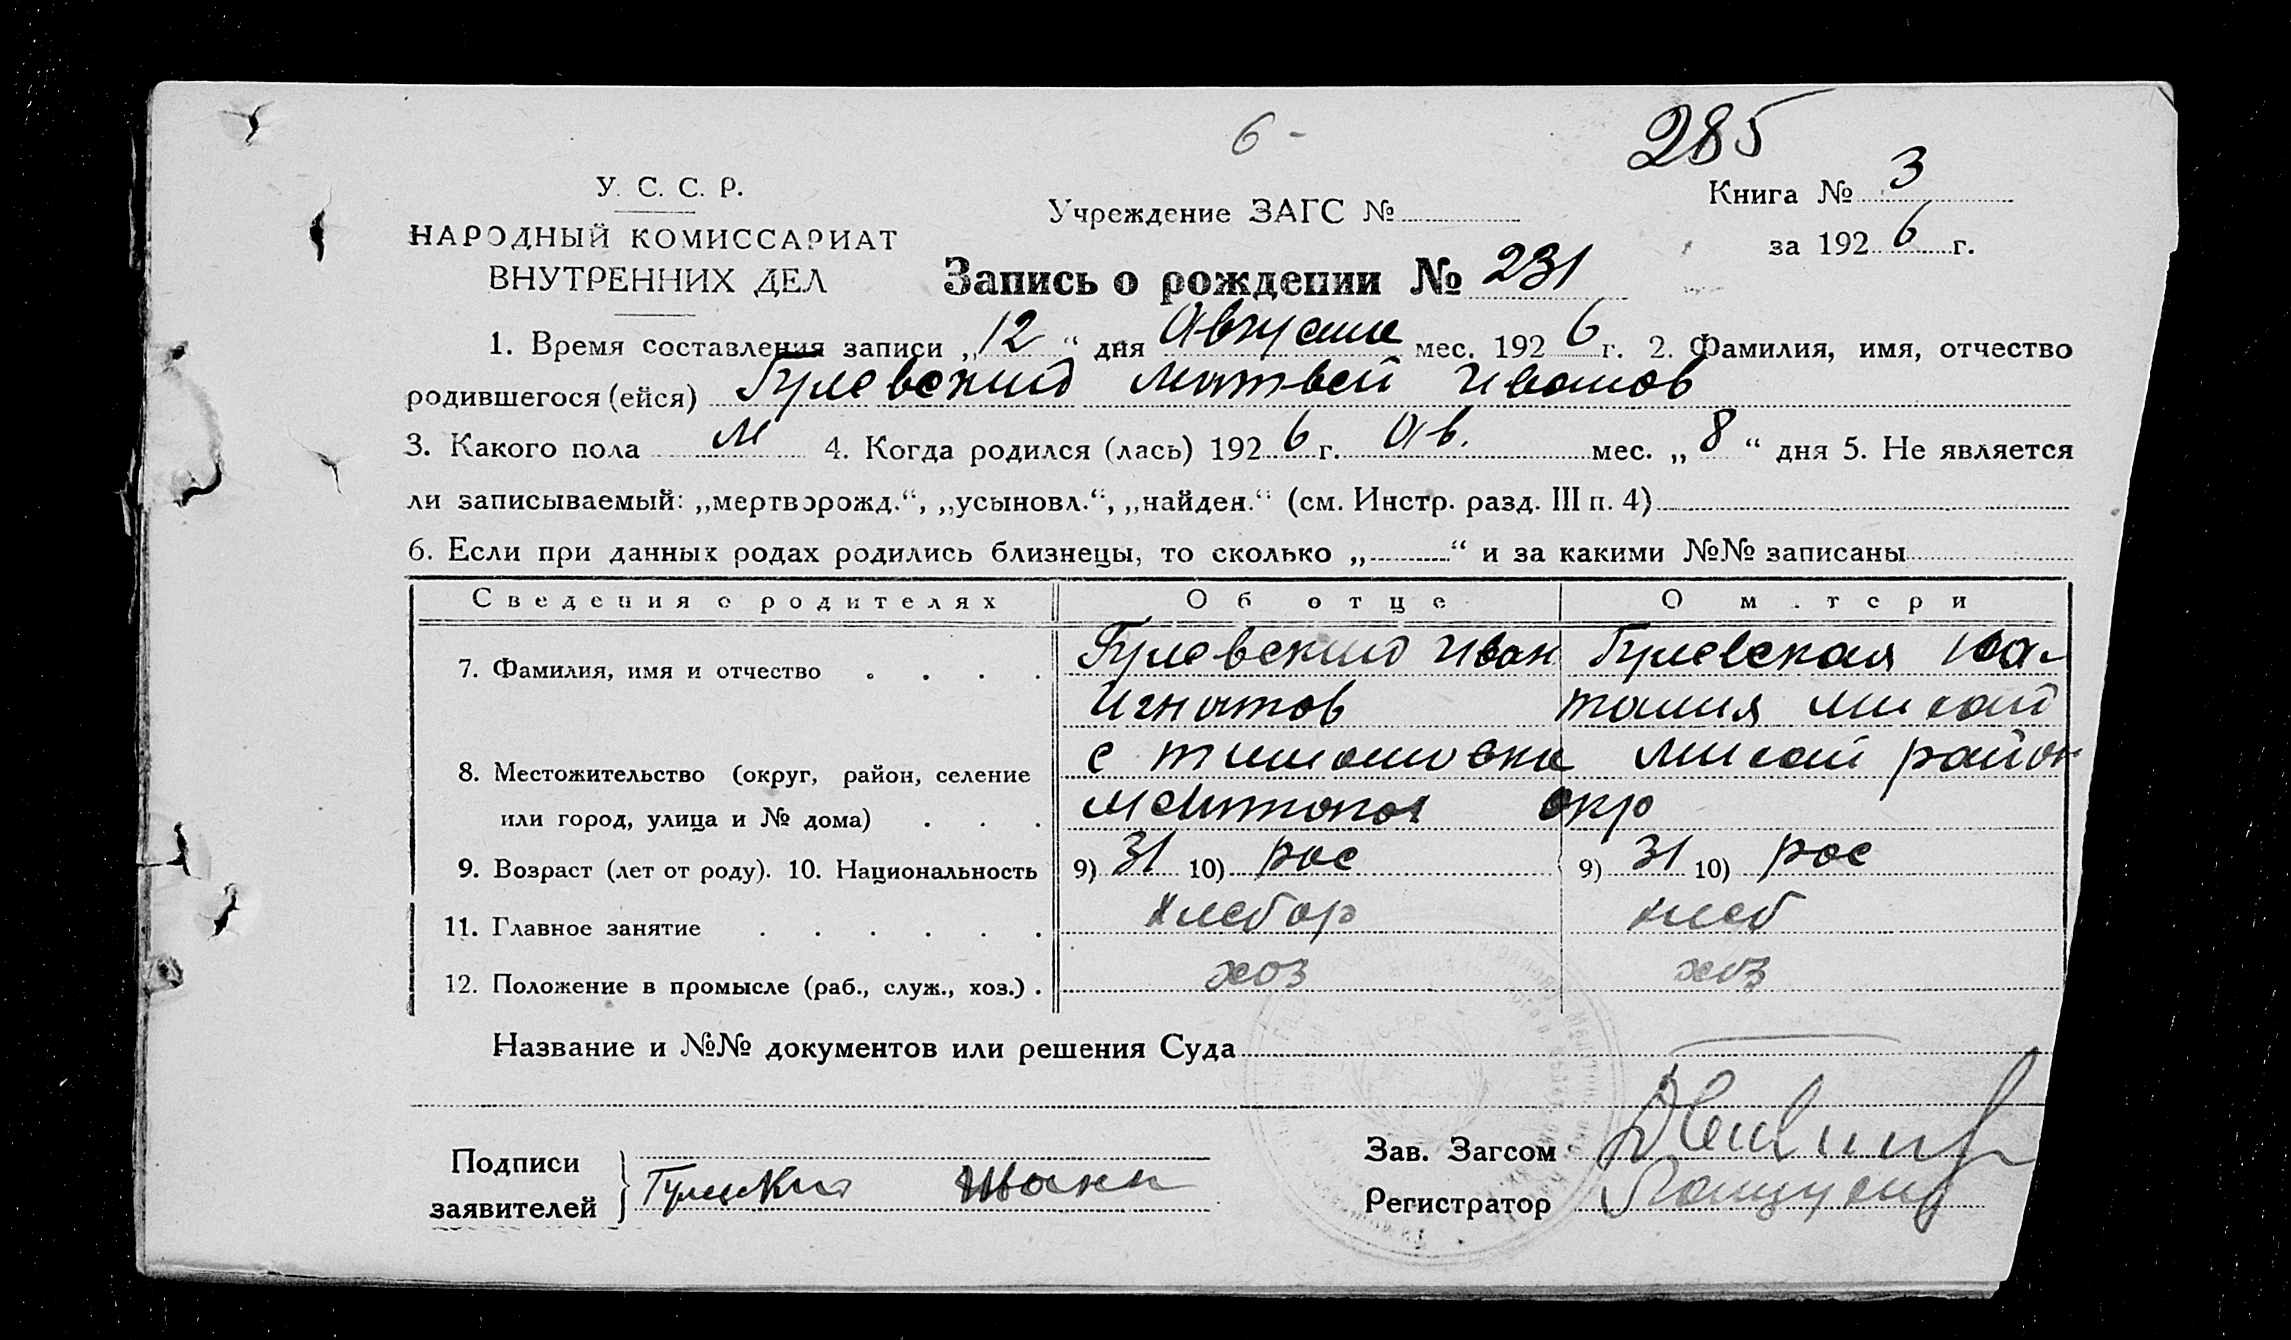 6 -
285
У. С. С. Р.
НАРОДНЫЙ КОМИССАРИАТ
ВНУТРЕННИХ ДЕЛ
Учреждение ЗАГС №
Книга № 3
за 1926 г.
Запись о рождении № 231
1. Время составления записи „12“ дня Августа мес. 1926 г. 2. Фамилия, имя, отчество
родившегося (ейся) Гулевский Матвей Иванов
3. Какого пола м 4. Когда родился (лась) 1926 г. Ав. мес. „8“ дня 5. Не является
ли записываемый: „мертворожд.“, „усыновл.“, „найден.“ (см. Инстр. разд. III п. 4)
6. Если при данных родах родились близнецы, то сколько „ “ и за какими №№ записаны
Сведения о родителях Об отце О матери
7. Фамилия, имя и отчество . . . . Гулевский Иван Гулевская На-
Игнатов талия
8. Местожительство (округ, район, селение с Тимошовка район
или город, улица и № дома) . . . Мелитопол окр
9. Возраст (лет от роду). 10. Национальность 9) 31 10) рос 9) 31 10) рос
11. Главное занятие . . . . . . хлебор хлеб
12. Положение в промысле (раб., служ., хоз.) . хоз хоз
Название и №№ документов или решения Суда
Подписи
заявителей
Зав. Загсом
Регистратор